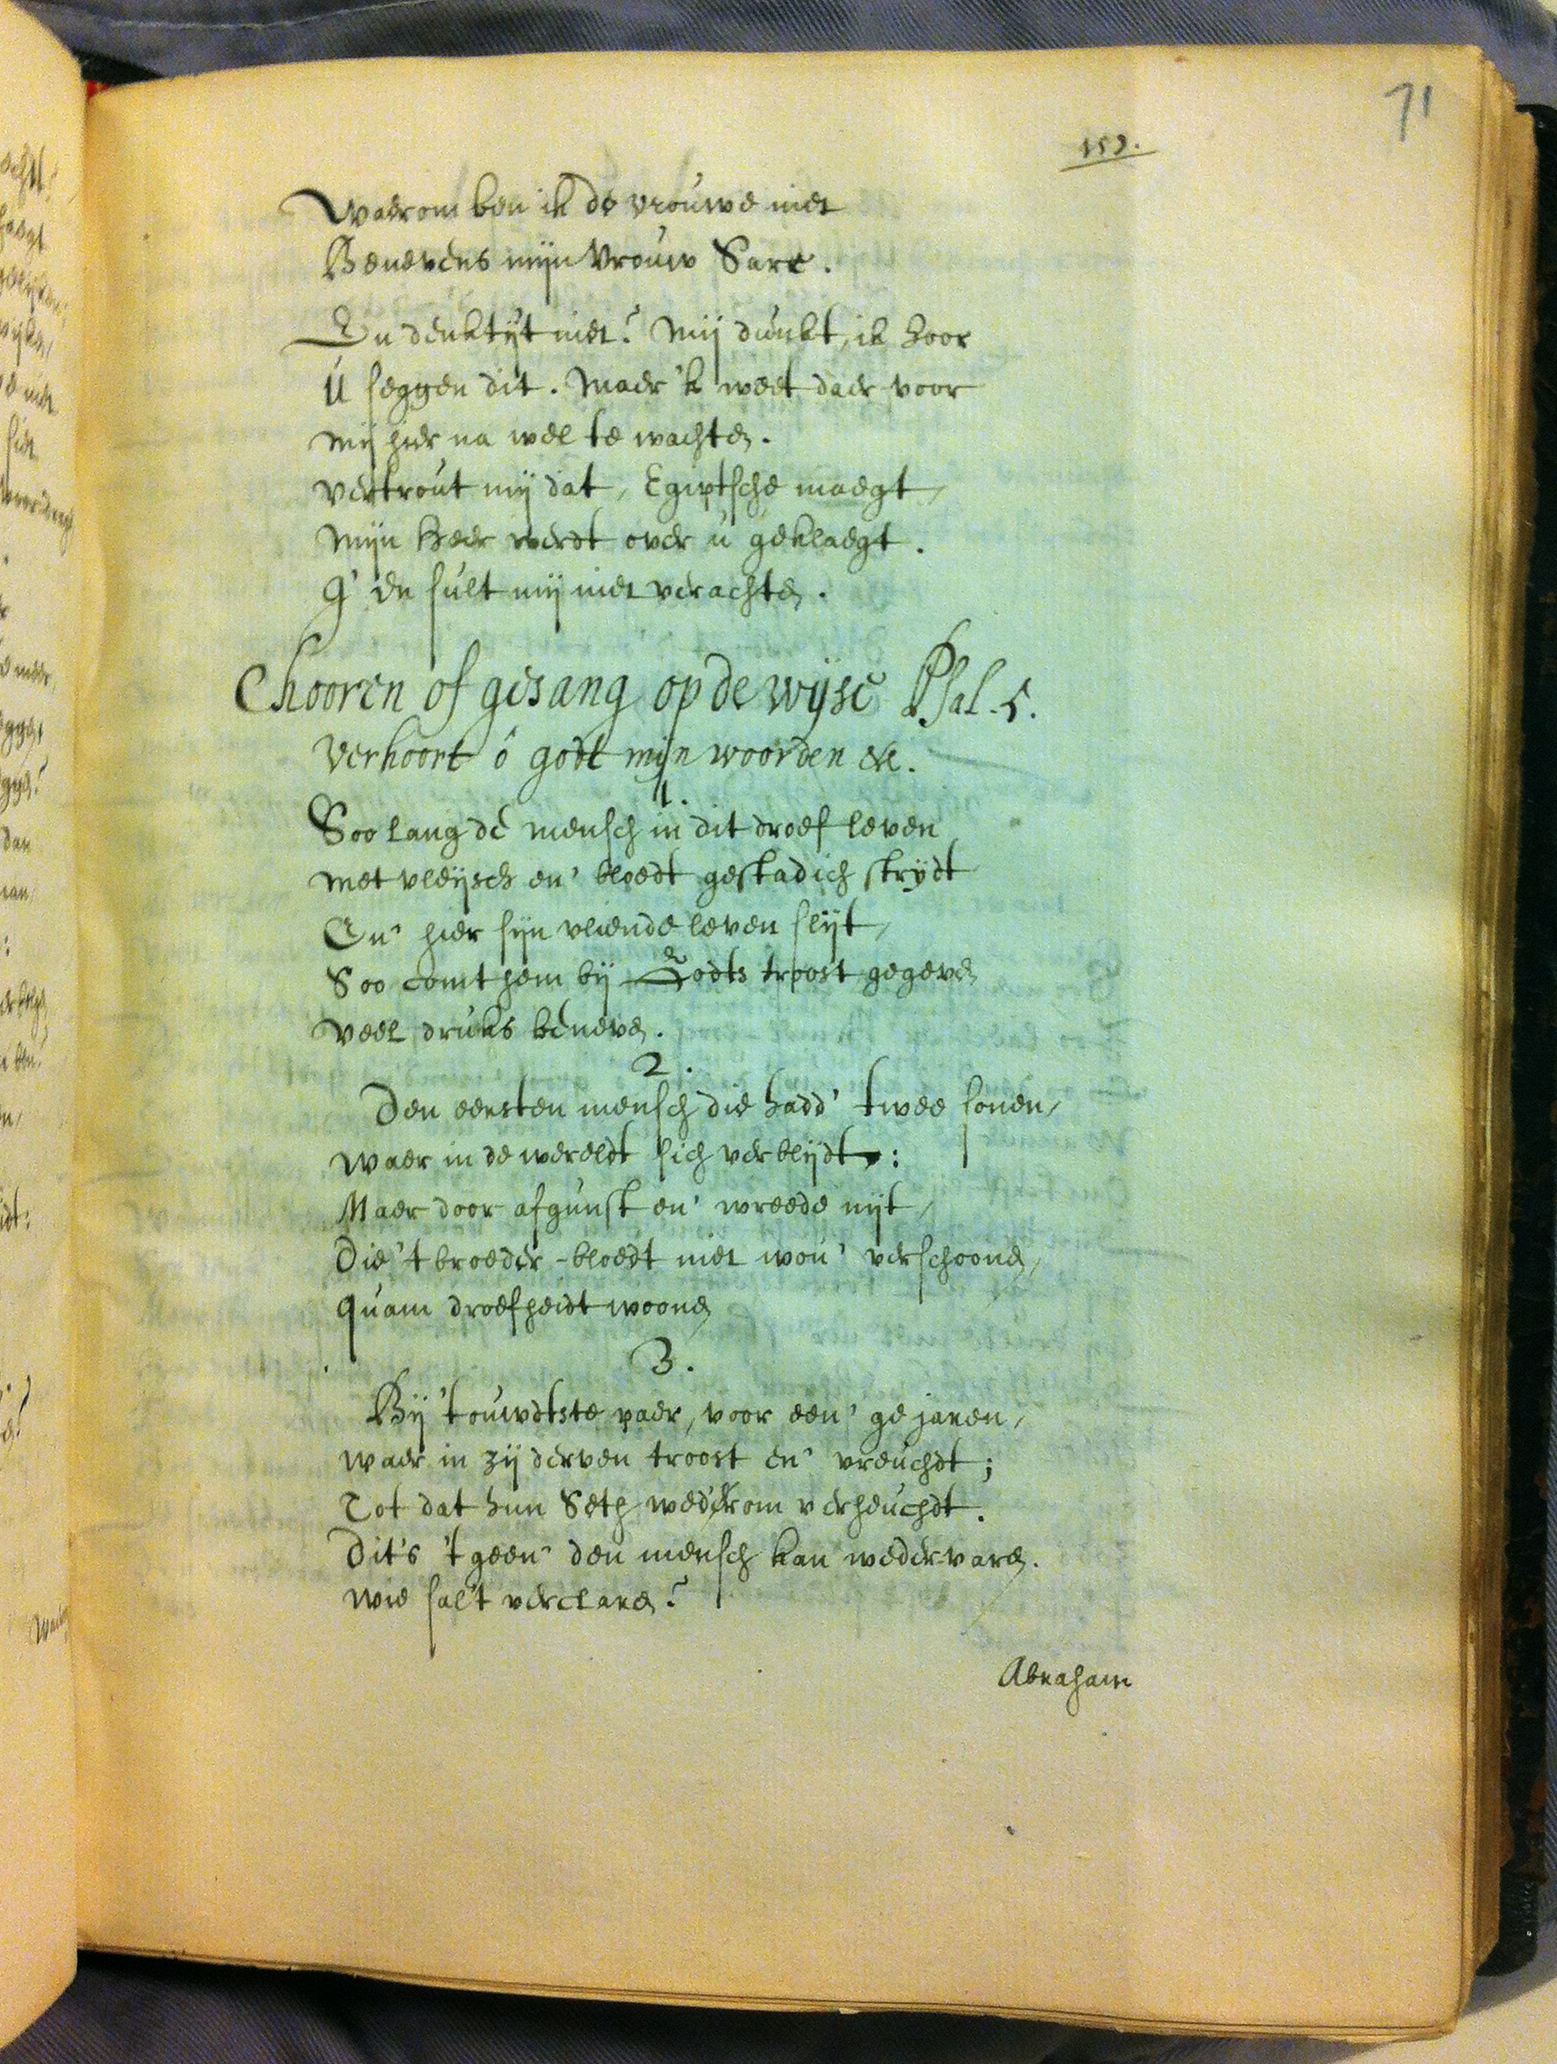 71
159.
Waerom ben ik de vrouwe niet
Benevens mijn Vrouw Sare.
En denktijt niet? Mij dunkt, ik hoor
U seggen dit. Maer 'k weet daer voor
mij hier na wel te wachten.
vertrout mij dat, Egiptsche maegt,
Mijn Heer werdt over u geklaegt.
G' en sult mij niet verachten.
Chooren of gesang op de wijse Psal. 5.
Verhoort ô godt mijn woorden etc.
1.
Soo lang de mensch in dit droef leven
met vleijsch en' bloedt gestadich strijdt
En' hier sijn vliende leven slijt,
Soo comt hem bij Godts troost gegeven
veel druks beneven.
2.
Den eersten mensch die hadd' twee sonen,
waer in de wereldt sich verblijdt:
Maer door afgunst en' wreede nijt,
Die 't broeder-bloedt niet wou' verschoonen,
quam droefheidt woonen
3.
Bij 't ouwdtste paer, voor een'ge jaren,
waer in zij derven troost en' vreuchdt;
Tot dat hun Seth wederom verheuchdt.
Dit's 't geen' den mensch kan wedervaren.
wie sal't verclaren?
Abraham